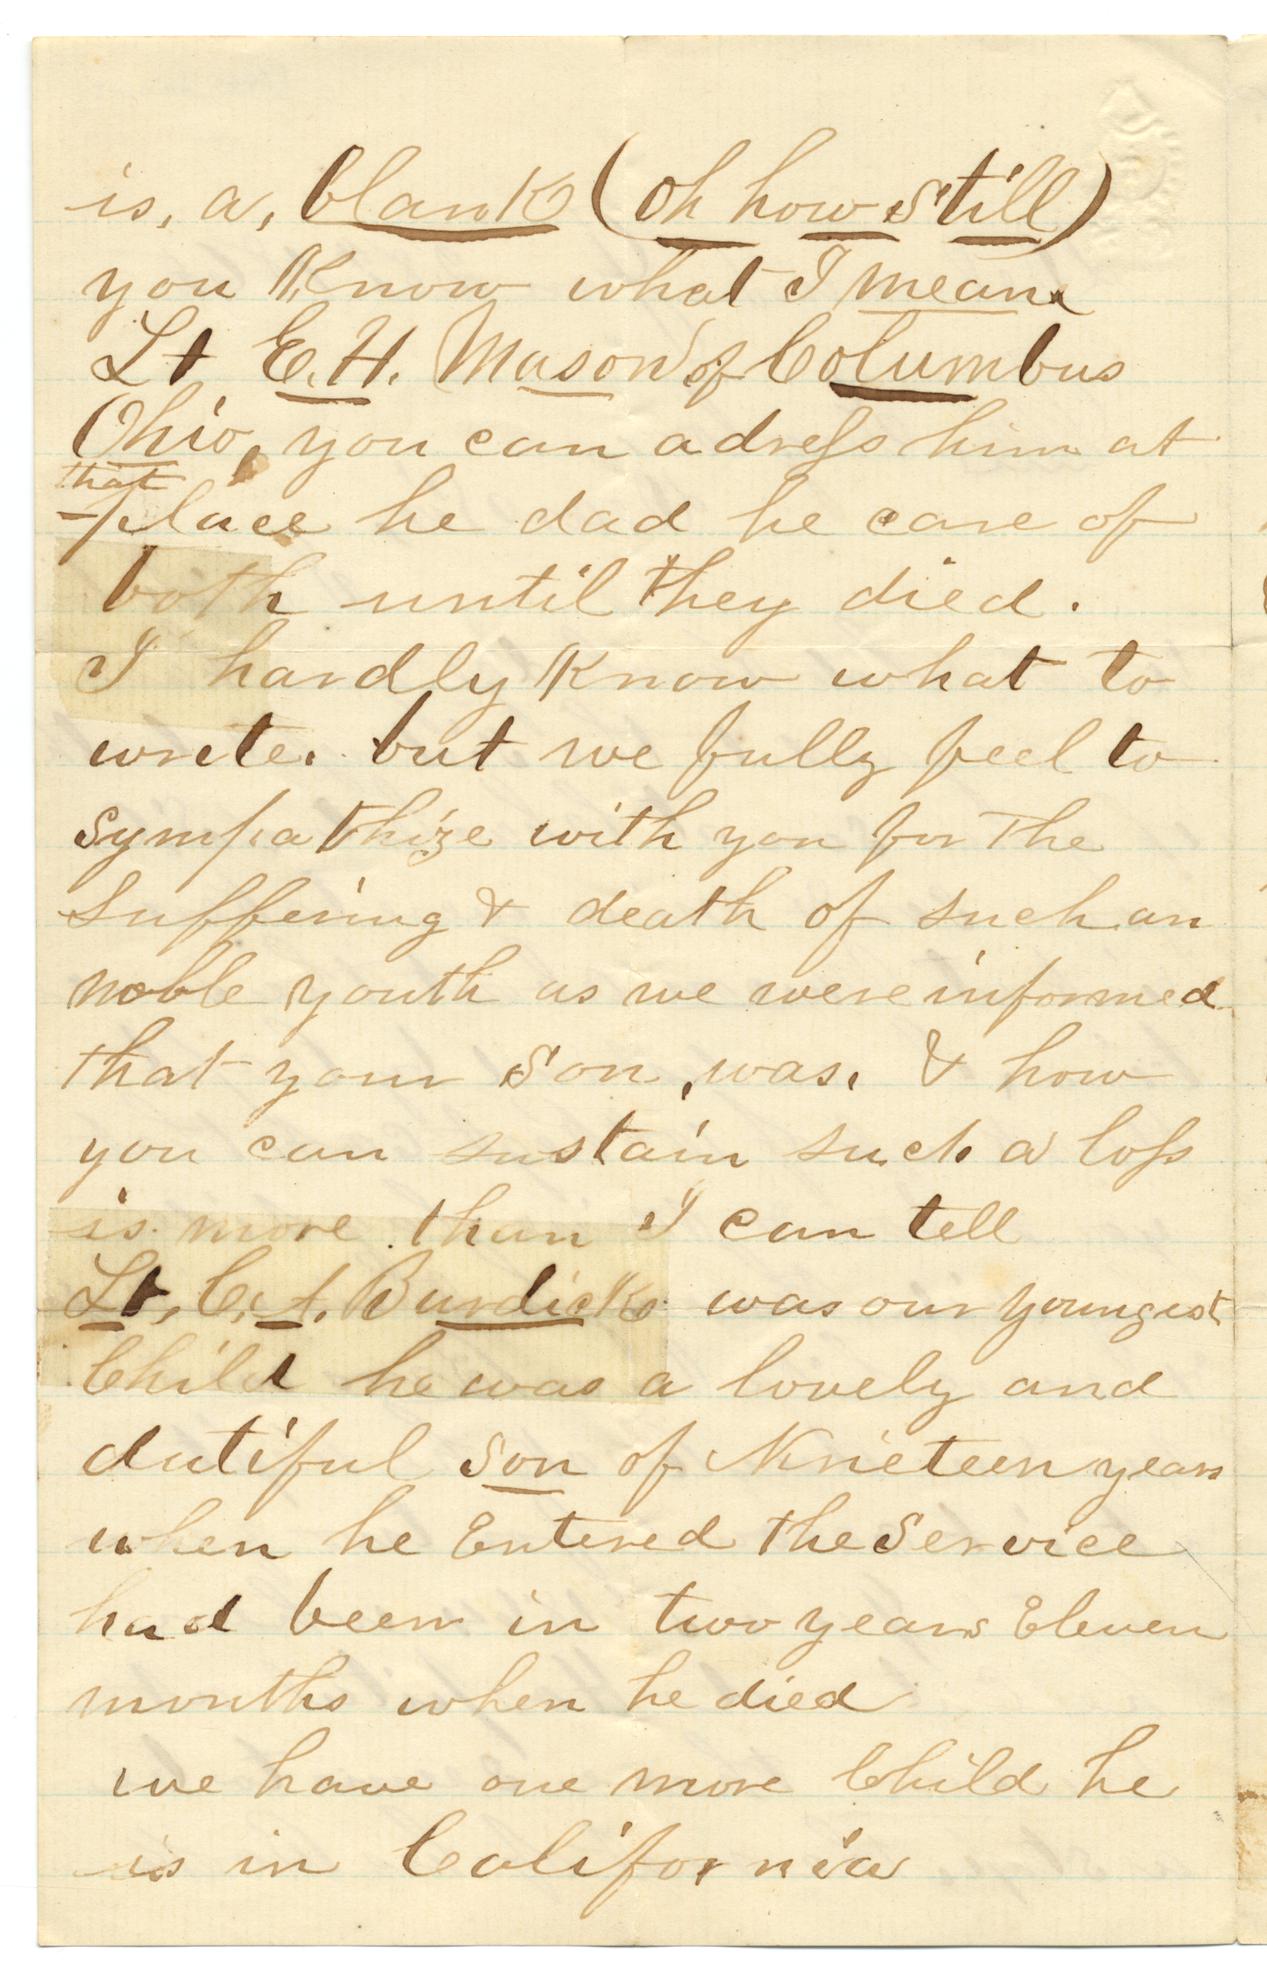 is, a, blank (oh how still)
you Know what I mean
Lt E. H. Mason of Columbus
Ohio, you can adress him at
that
place he dad he care of
both until they died.
I hardly Know what to
write. but we fully feel to
Sympathize with you for the
Suffering & death of such an
noble youth as we were informed
that your Son, was, & how
you can sustain such a loss
is more than I can tell
Lt, C. A. Burdicks was our youngest
Child he was a lovely and
dutiful Son of Nineteen years
when he Entered the Service
had been in two years Eleven
months when he died
we have one more Child he
is in California